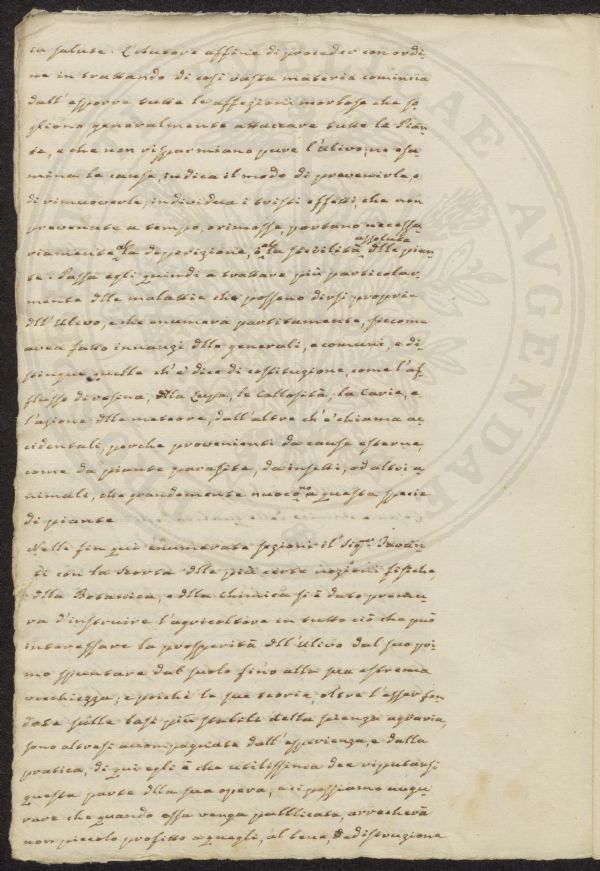 ca salute. L'Autore affine di procedere con ordi-
ne in trattando di così vasta materia comincia
dall'esporre tutte le affezioni morbose che so-
gliono generalmente attaccare tutte le Pian-
te, e che non risparmiano pure l'ulivo; ne esa-
mina la causa, indica il modo di prevenirle, o
di rimuoverle, individua i tristi effetti, che non
prevenute a tempo, o rimosse, portano necessa-
riamente alla deperizione, o alla sterilità assoluta dlle pian-
te. Passa egli quindi a trattare più particolar-
mente dlle malattie che possono dirsi proprie
dll'Ulivo, e che enumera partitamente, siccome
avea fatto innanzi dlle generali, e comuni, e di-
stingue quelle ch'è dice di costituzione, come l'af-
flusso di resina, dlla Lupa, le callosità, la carie, e
l'azione dlle meteore, dall'altre ch'è chiama ac-
cidentali, perche provenienti da cause esterne,
come da piante parasite, da insetti, od altri a-
nimali, che grandemente nuocono a questa specie
di piante.
Nelle fin qui enumerate sezioni il Sigr. Tavan-
ti con la scorta dlle più certe nozioni fisiche,
dlla Botanica, e dlla chimica si è dato premu-
ra d'instruire l'agricoltore in tutto ciò che può
interessare la prosperità dll'Ulivo dal suo pri-
mo spuntare dal suolo fino alla sua estrema
vecchiezza; e poichè le sue teorie, oltre l'esser fon-
date sulle basi più stabili della scienza agraria,
sono altresì accompagnate dall'esperienza, e dalla
pratica, di qui egli è che utilissima dee riputarsi
questa parte dlla sua opera, e ci possiamo augu-
rare che quando essa venga pubblicata, arrecherà
non piccolo profitto a quegli, al bene, ed istruzione